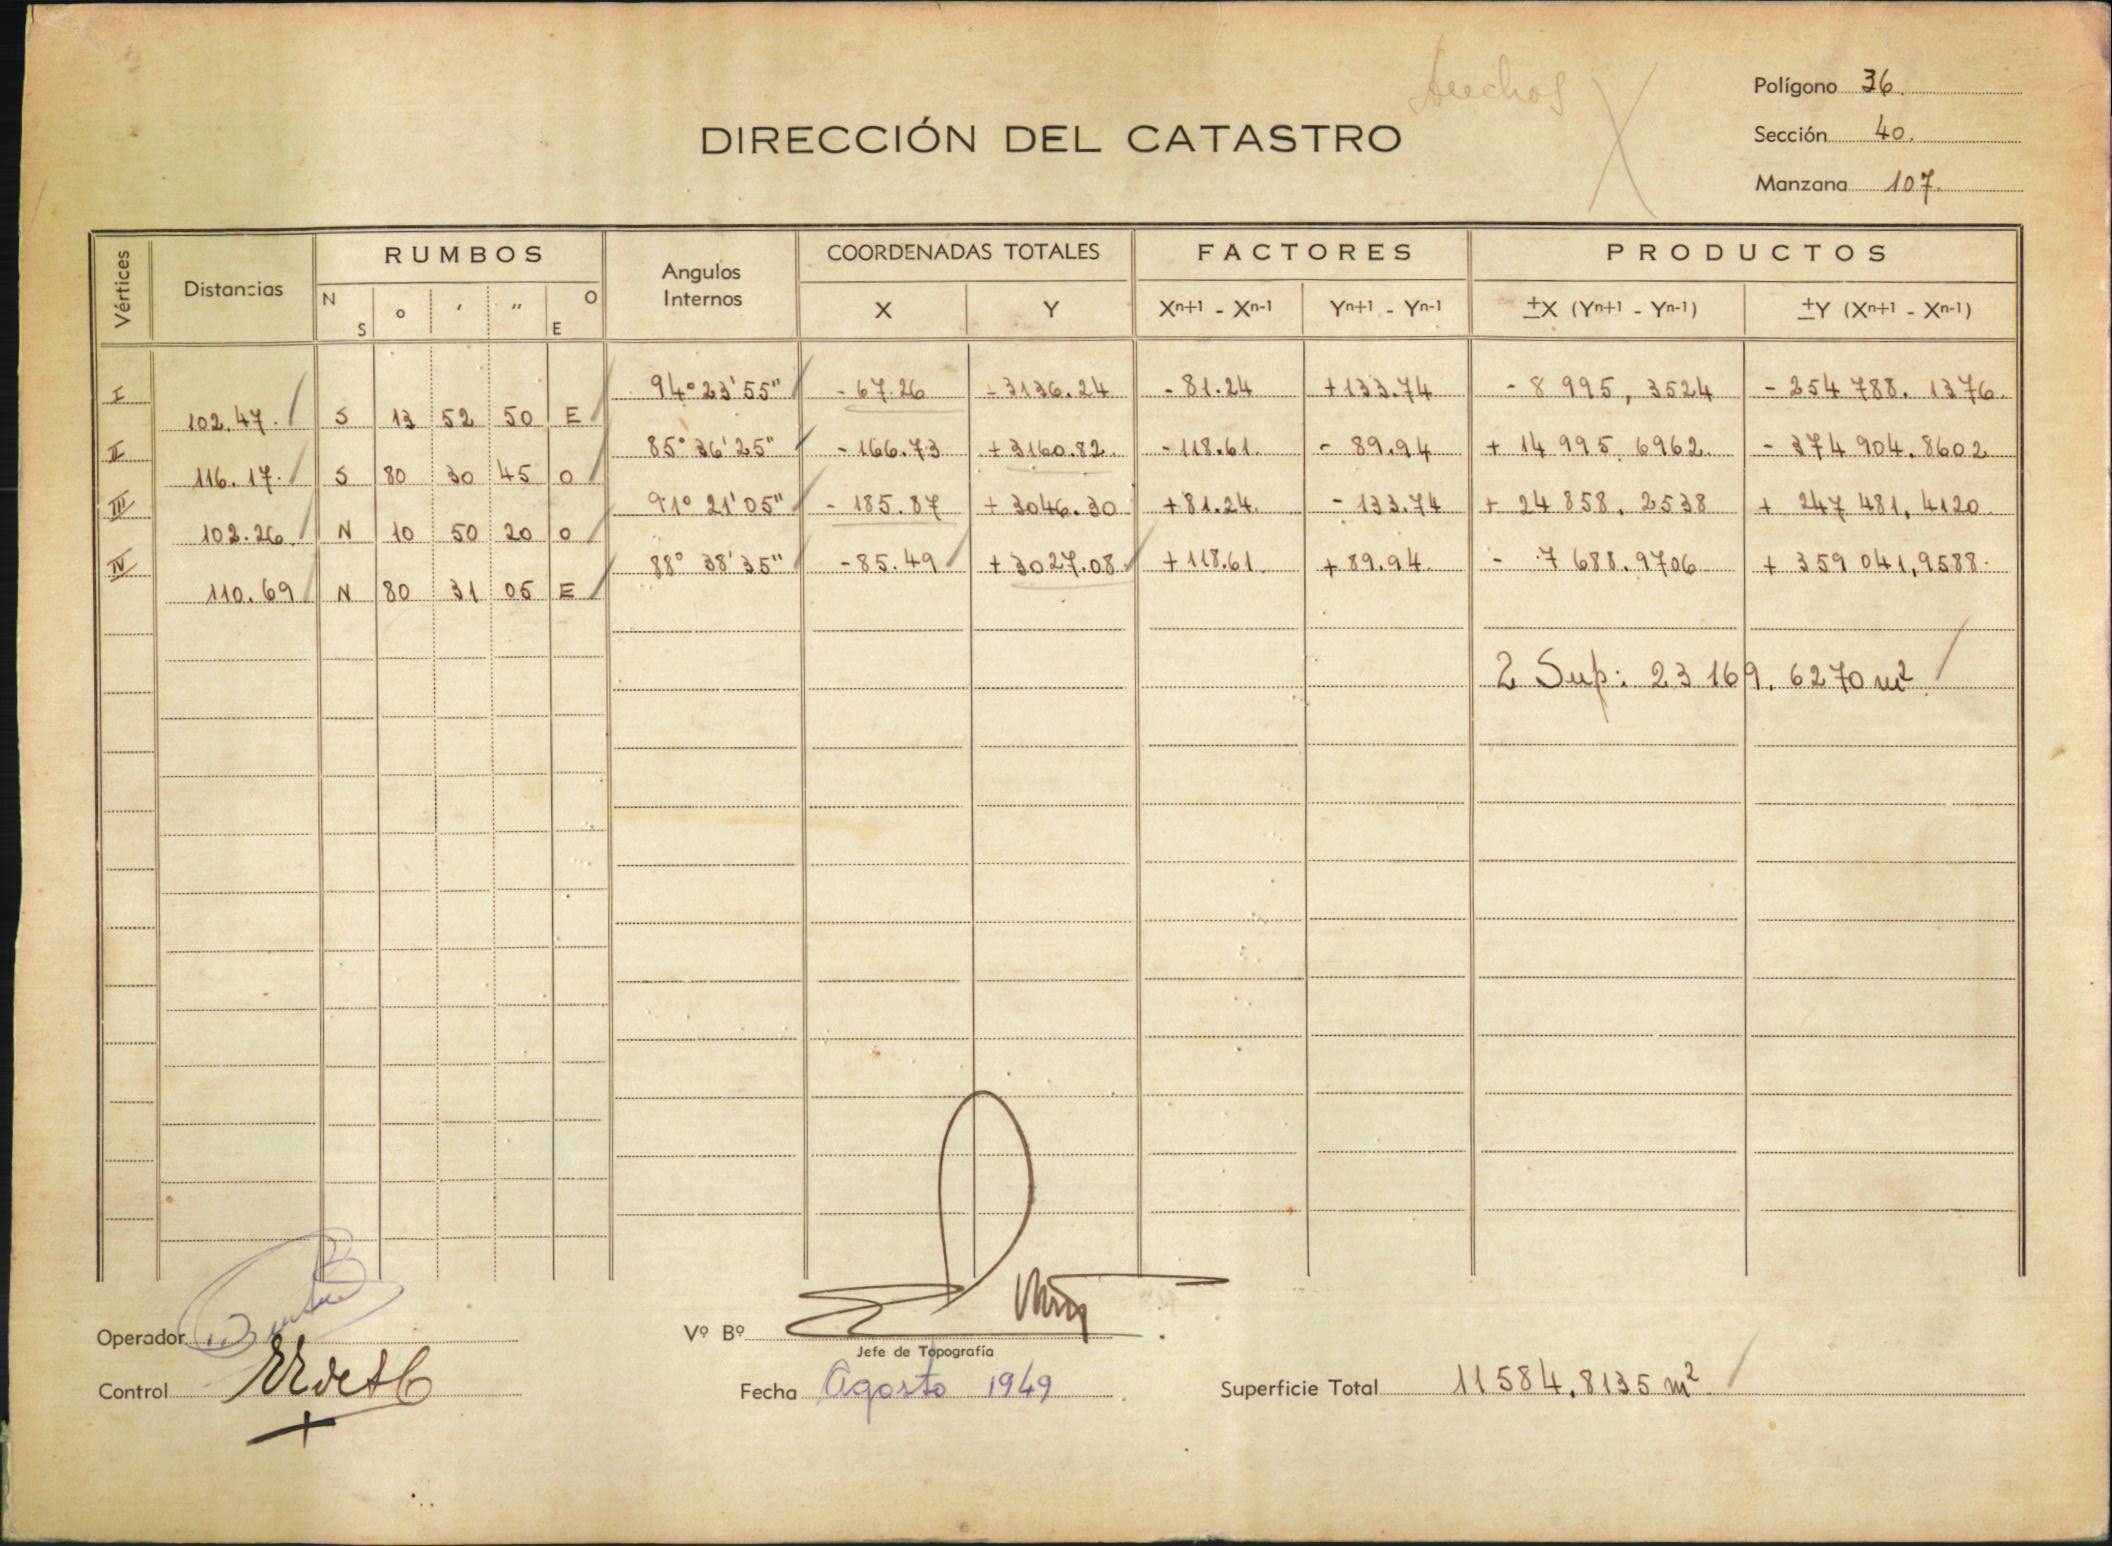 Polígono 36.
DIRECCIÓN DEL CATASTRO
Sección 40.
Manzana 107.
Vértices Distancias RUMBOS Angulos Internos COORDENADAS TOTALES FACTORES PRODUCTOS
N S ° ' " O E X Y Xn+1 - Xn-1 Yn+1 - Yn-1 ±X (Yn+1 - Yn-1) ±Y (Xn+1 - Xn-1)
I 94°23'55" - 67.26 +3136.24 - 81.24 +133.74 - 8 995, 3524 - 254 788. 1376.
102.47. S 13 52 50 E
II 85° 36'25" - 166.73 +3160.82. - 118.61. - 89.94 + 14 995. 6962. - 374 904.8602
116.17. S 80 30 45 O
III 91° 21'05" - 185.87 + 3046.30 + 81.24. - 133.74 + 24 858. 2538 + 247 481, 4120.
102.26. N 10 50 20 O
IV 88° 38'35" - 85.49 + 3027.08. + 118.61. + 89.94. - 7 688.9706 + 359 041,9588.
110.69 N 80 31 05 E
2 Sup: 23 169. 6270 m²
Operador
Vº Bº
Jefe de Topografía
Control
Fecha Agosto 1949
Superficie Total 11584.8135 m²